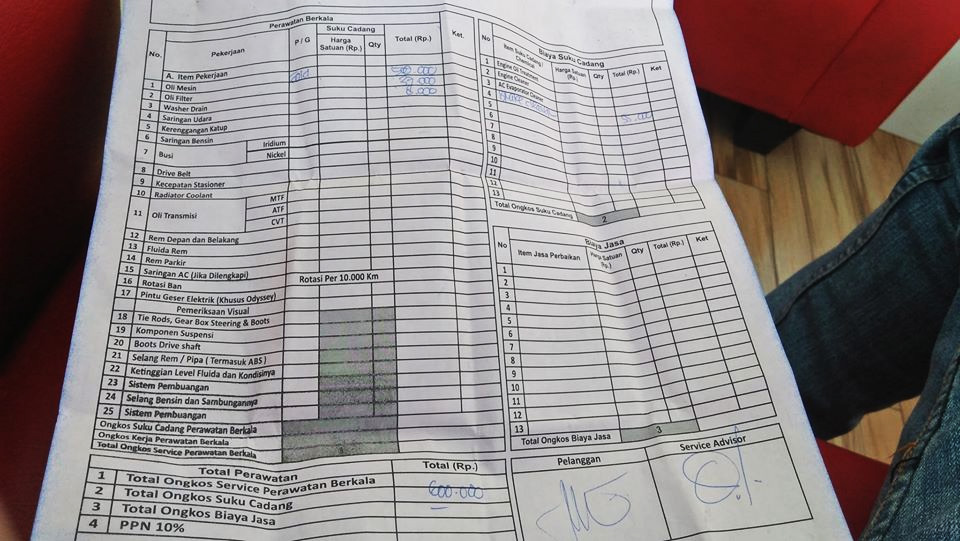 Perawatan Berkala
No. Pekerjaan P / G Suku Cadang Total (Rp.) Ket.
Harga Satuan (Rp.) Qty
A. Item Pekerjaan
1 Oli Mesin
2 Oli Filter
3 Washer Drain 8.000
4 Saringan Udara
5 Kerenggangan Katup
6 Saringan Bensin
7 Busi Iridium
Nickel
8 Drive Belt
9 Kecepatan Stasioner
10 Radiator Coolant
11 Oli Transmisi MTF
ATF
CVT
12 Rem Depan dan Belakang
13 Fluida Rem
14 Rem Parkir
15 Saringan AC (Jika Dilengkapi)
16 Rotasi Ban Rotasi Per 10.000 Km
17 Pintu Geser Elektrik (Khusus Odyssey)
Pemeriksaan Visual
18 Tie Rods, Gear Box Steering & Boots
19 Komponen Suspensi
20 Boots Drive shaft
21 Selang Rem / Pipa ( Termasuk ABS )
22 Ketinggian Level Fluida dan Kondisinya
23 Sistem Pembuangan
24 Selang Bensin dan Sambungannya
25 Sistem Pembuangan
Ongkos Suku Cadang Perawatan Berkala
Ongkos Kerja Perawatan Berkala
Total Ongkos Service Perawatan Berkala
Total Perawatan Total (Rp.)
1 Total Ongkos Service Perawatan Berkala
2 Total Ongkos Suku Cadang 600.000
3 Total Ongkos Biaya Jasa
4 PPN 10%
Biaya Suku Cadang
No Item Suku Cadang / Chemical Harga Satuan (Rp.) Qty Total (Rp.) Ket
1 Engine Oil Treatment
2 Engine Cleaner
3 AC Evaporator Cleaner
4
5
6
7
8
9
10
11
12
13
Total Ongkos Suku Cadang 2
Biaya Jasa
No Item Jasa Perbaikan Harga Satuan (Rp.) Qty Total (Rp.) Ket
1
2
3
4
5
6
7
8
9
10
11
12
13
Total Ongkos Biaya Jasa 3
Pelanggan Service Advisor